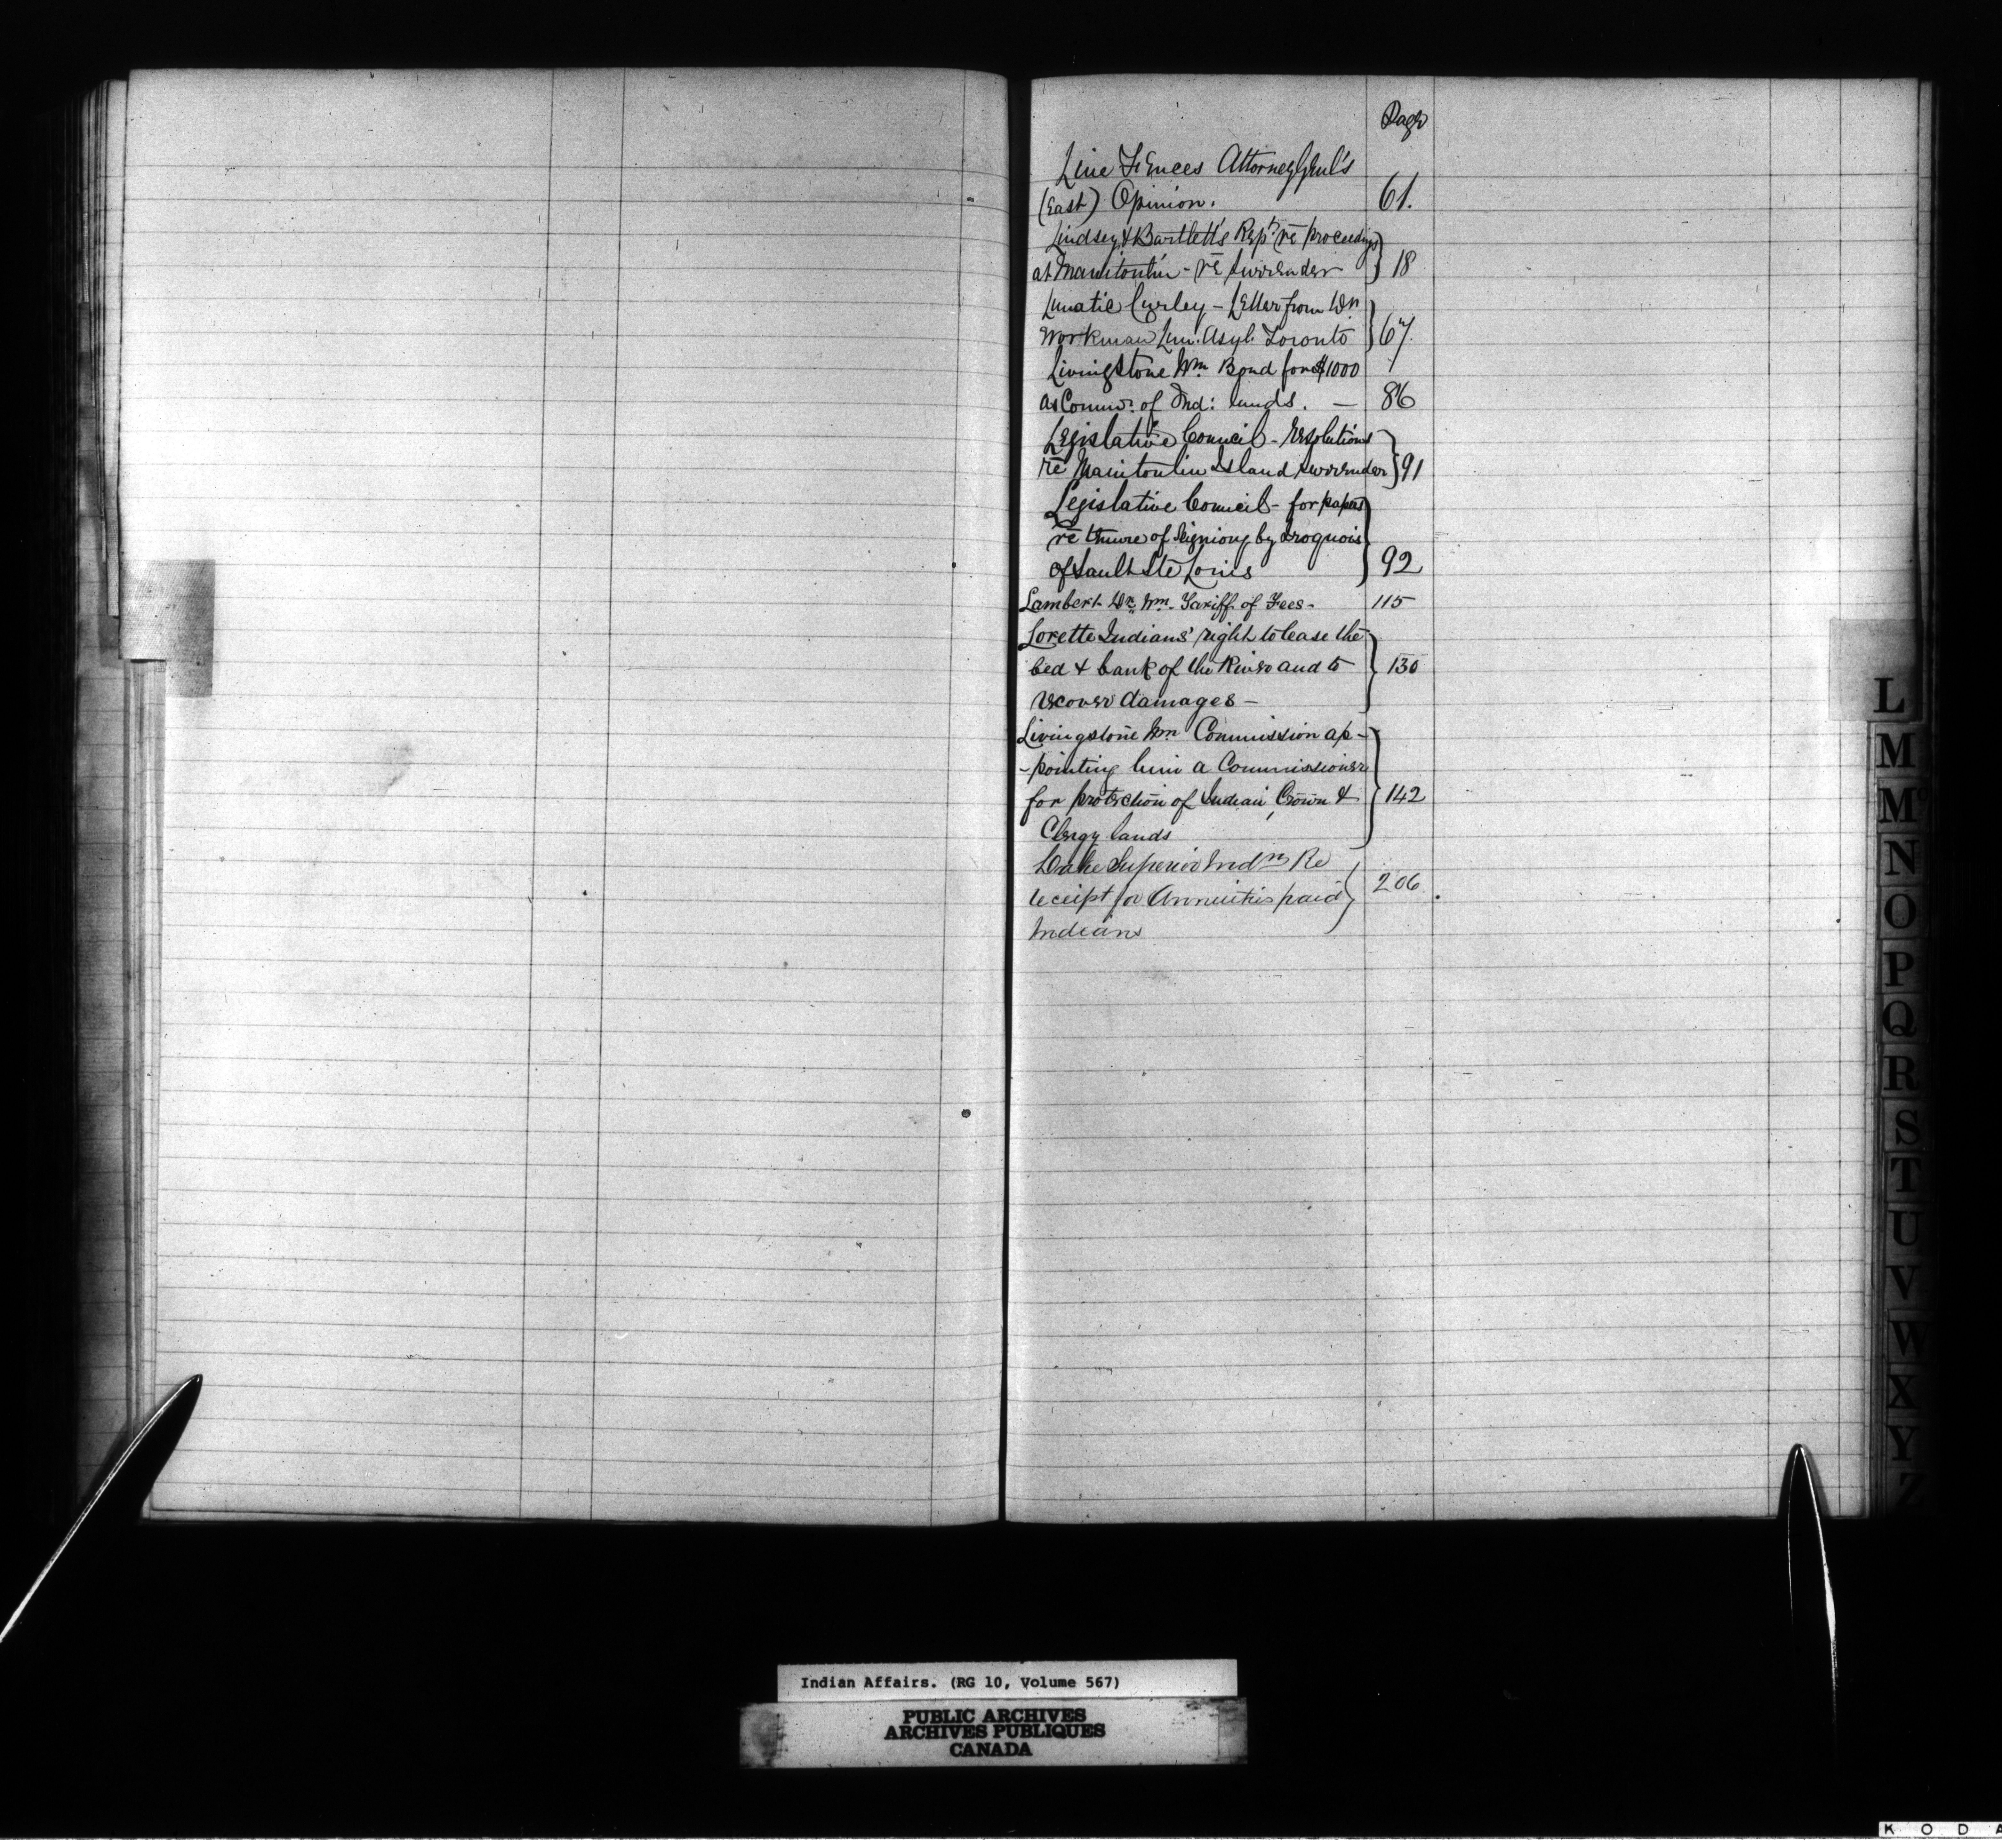 Page
Line Fences Attorney Genl's
(East) Opinion. 61.
Lindsey & Bartlett's Rept. re proceedings
at Manitoulin - re surrender 18
Lunatic Curley - Letter from Dr.
Workman Lun. Asyl. Toronto 67
Livingstone Wm. Bond for $1000
as Commr. of Ind: lands. — 86
Legislative Council - resolutions
re Manitoulin Island surrender 91
Legislative Council - for papers
re tenure of Seigniory by Iroquois
of Sault Ste Louis 92
Lambert Dr. Wm. Tariff of Fees - 115
Lorette Indians' right to lease the
bed & bank of the River and to 130
recover damages -
Livingstone Wm Commission ap-
-pointing him a Commissioner
for protection of Indian, Crown & 142
Clergy lands
Lake Superior Indns Re
ceipt for Annuities paid 206
Indians
L
M
Mc
N
O
P
Q
R
S
T
U
V
W
X
Y
Z
Indian Affairs. (RG 10, Volume 567)
PUBLIC ARCHIVES
ARCHIVES PUBLIQUES
CANADA
K O D A